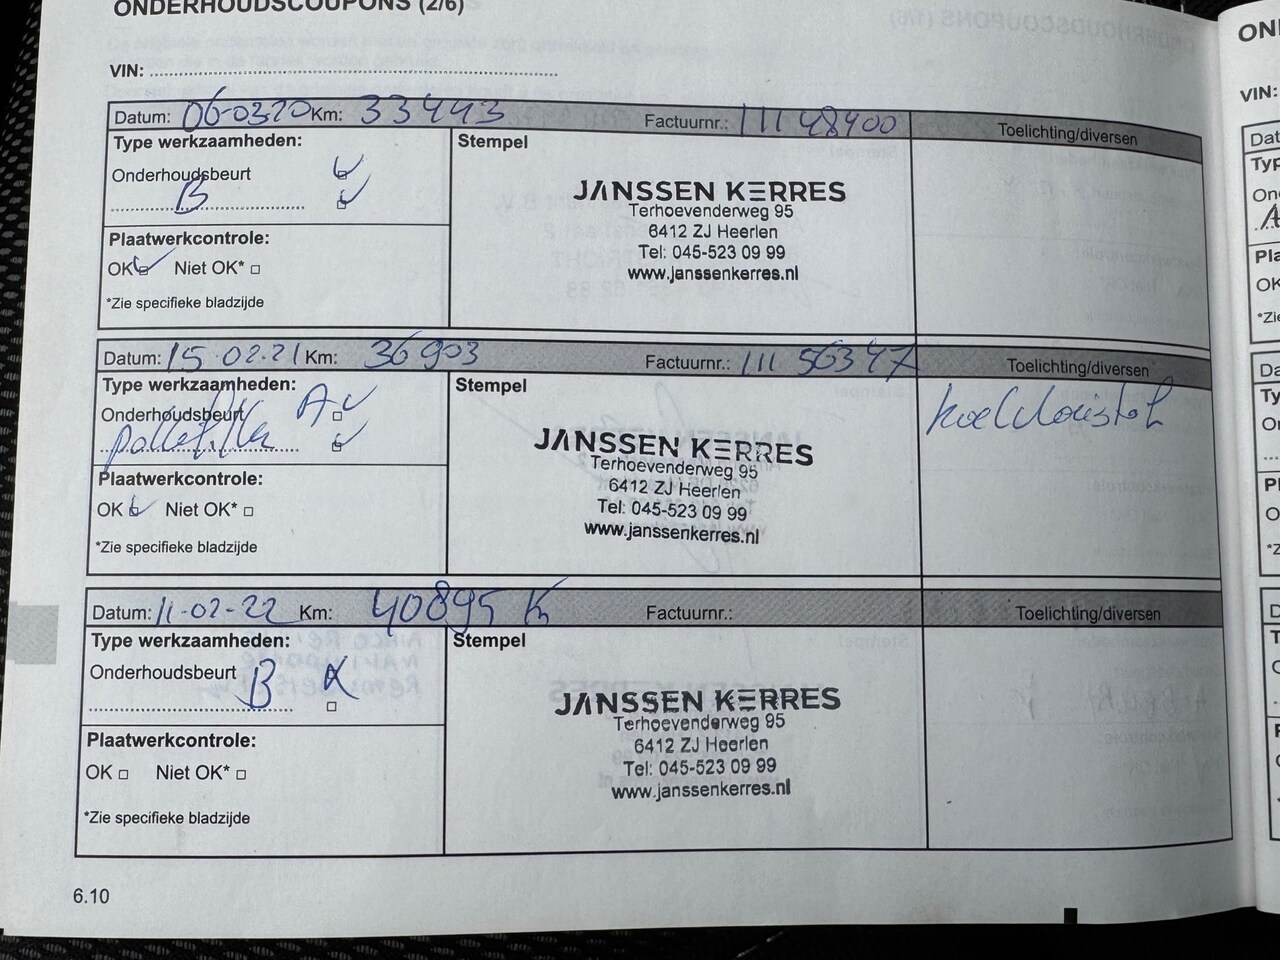 ONDERHOUDSCOUPONS (2/6)
VIN:
Datum: 06-0320 Km: 33443 Factuurnr.: 11148400 Toelichting/diversen
Type werkzaamheden:
Stempel
Onderhoudsbeurt
B
JANSSEN KERRES
Terhoevenderweg 95
6412 ZJ Heerlen
Tel: 045-523 09 99
www.janssenkerres.nl
Plaatwerkcontrole:
OK Niet OK*
*Zie specifieke bladzijde
Datum: 15-02-21 Km: 36903 Factuurnr.: 11156347 Toelichting/diversen
Type werkzaamheden:
Stempel
Onderhoudsbeurt A
JANSSEN KERRES
Terhoevenderweg 95
6412 ZJ Heerlen
Tel: 045-523 09 99
www.janssenkerres.nl
Plaatwerkcontrole:
OK Niet OK*
*Zie specifieke bladzijde
Datum: 11-02-22 Km: 40895 K Factuurnr.: Toelichting/diversen
Type werkzaamheden:
Stempel
Onderhoudsbeurt B
JANSSEN KERRES
Terhoevenderweg 95
6412 ZJ Heerlen
Tel: 045-523 09 99
www.janssenkerres.nl
Plaatwerkcontrole:
OK Niet OK*
*Zie specifieke bladzijde
6.10
VIN: